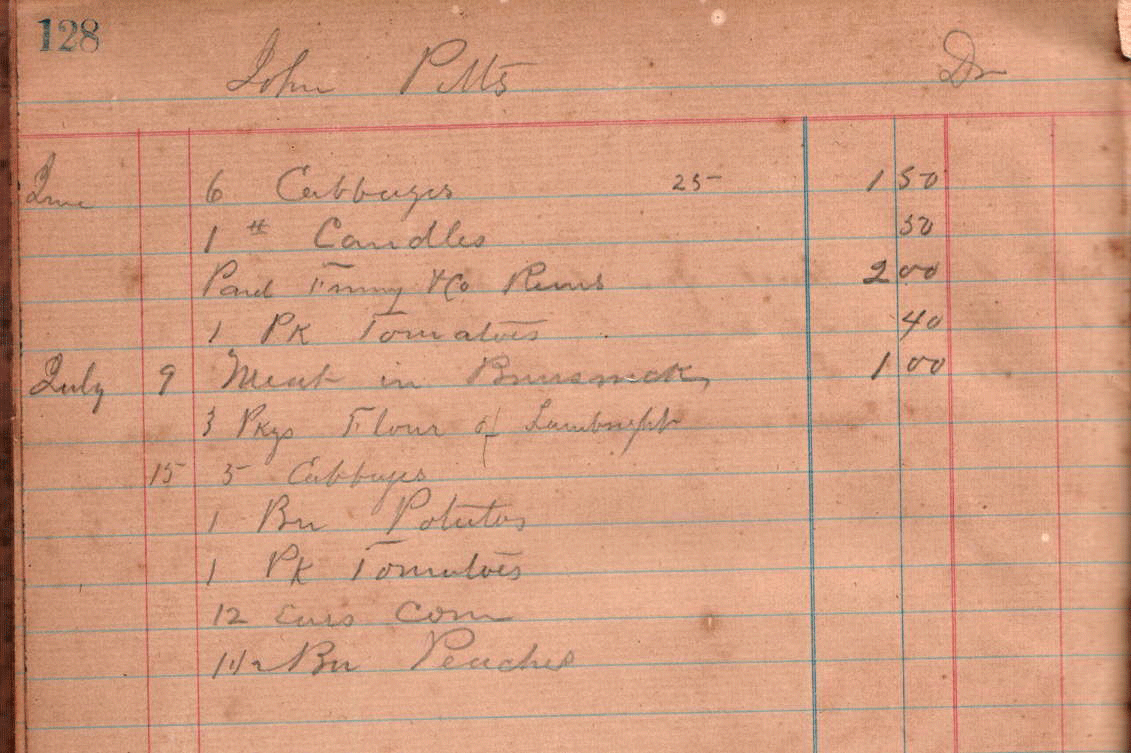 128
John Pitts Dr
June 6 Cabbages 25 1 50
1 # Candles 50
Paid &Co 2 00
1 Pk Tomatoes 40
July 9 Meat in Brunswick 1 00
3 Pkgs Flour of
15 5 Cabbages
1 Bu Potatos
1 Pk Tomatoes
12 Ears Corn
1 1/2 Bu Peaches